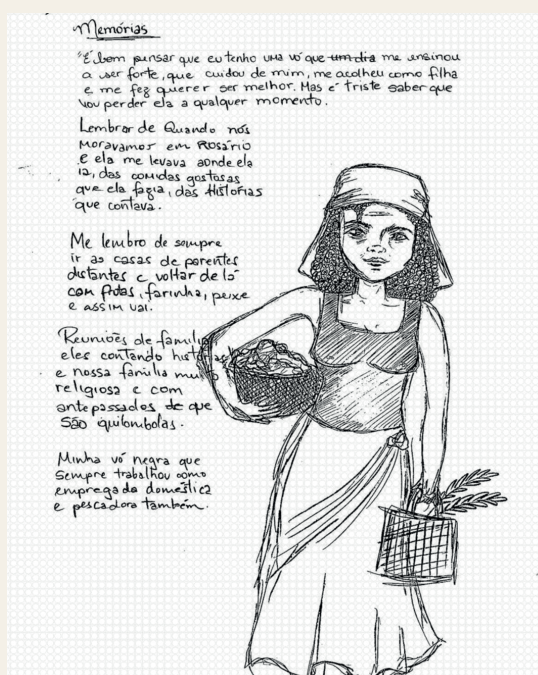 Memórias
"É bom pensar que eu tenho uma vó que um dia me ensinou
a ser forte, que cuidou de mim, me acolheu como filha
e me fez querer ser melhor. Mas é triste saber que
vou perder ela a qualquer momento.
Lembrar de Quando nós
Moravamos em Rosário
e ela me levava aonde ela
ia, das comidas gostosas
que ela fazia, das Histórias
que contava.
Me lembro de sempre
ir as casas de parentes
distantes e voltar de lá
com frutas, farinha, peixe
e assim vai.
Reuniões de família
eles contando histórias
e nossa família muito
religiosa e com
antepassados de que
São quilombolas.
Minha vó negra que
Sempre trabalhou como
empregada doméstica
e pescadora também.